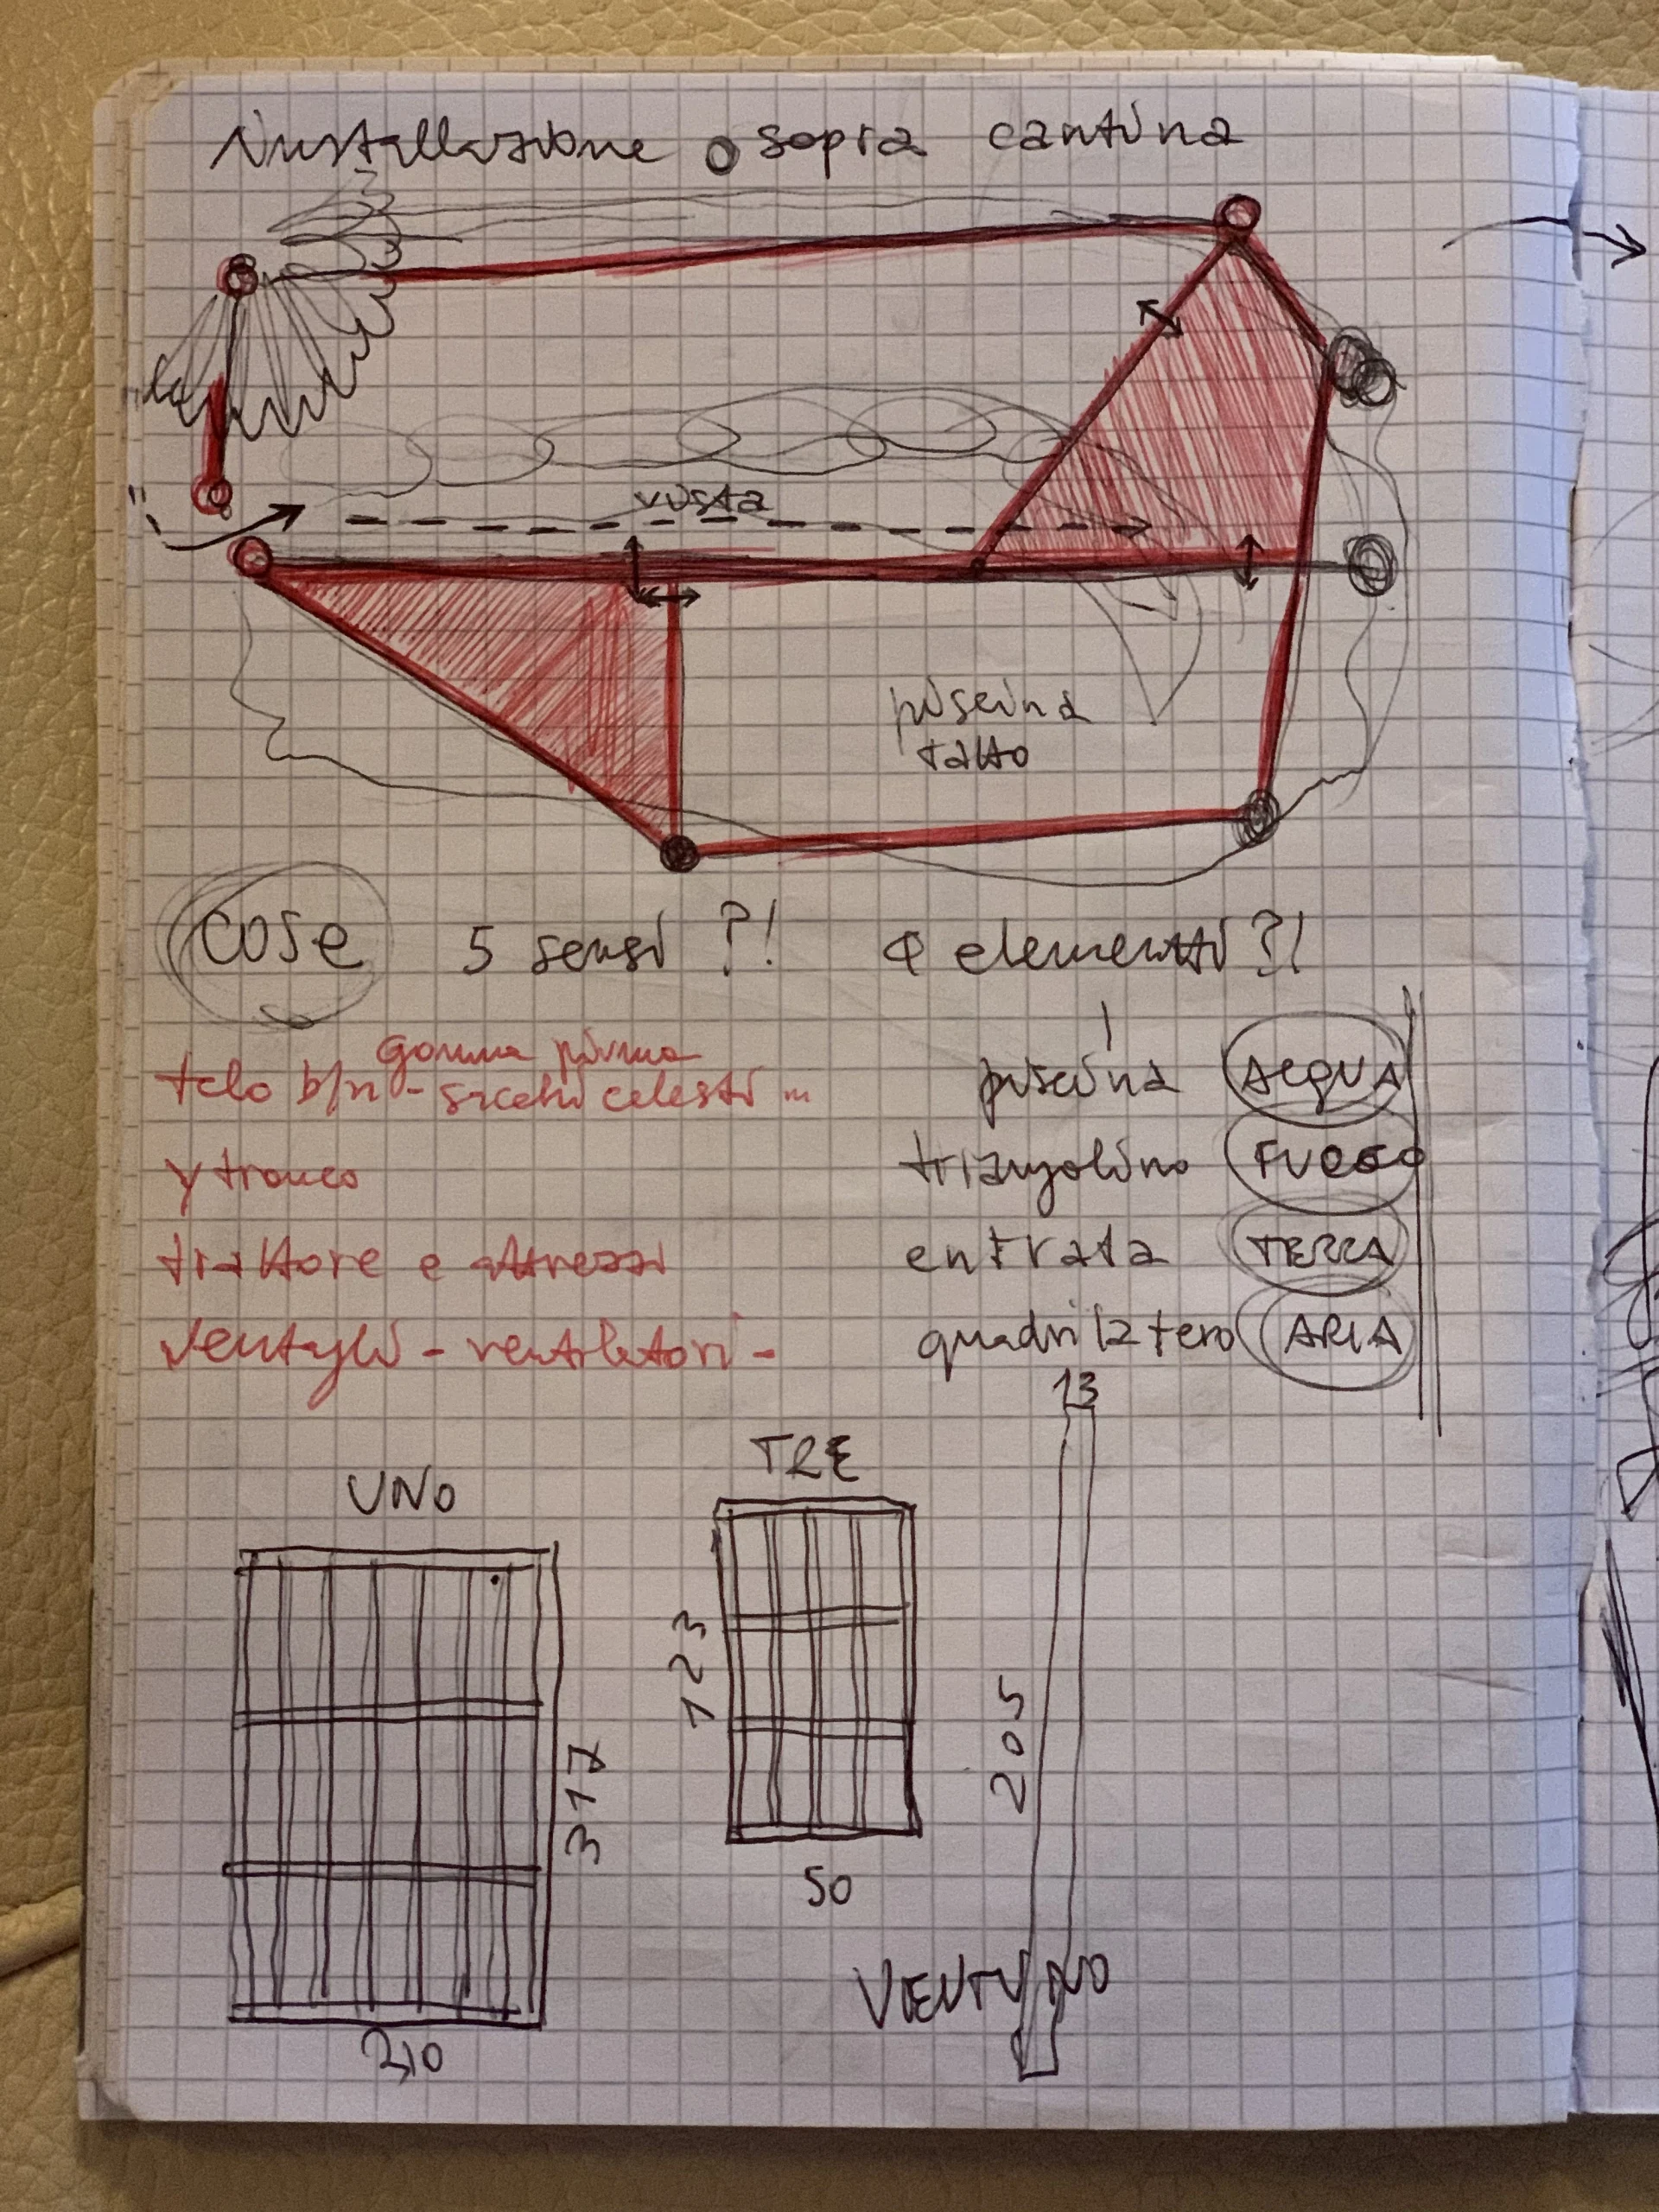 installazione sopra cantina
vista
piscina
tatto
cose 5 sensi ?! 4 elementi ?!
gomma piuma
telo b/n - sacchi celesti ...
piscina ACQUA
y tronco
triangolino FUOCO
trattore e attrezzi
entrata TERRA
ventagli - ventilatori -
quadrilatero ARIA
13
TRE
UNO
123
205
317
50
VENTUNO
210